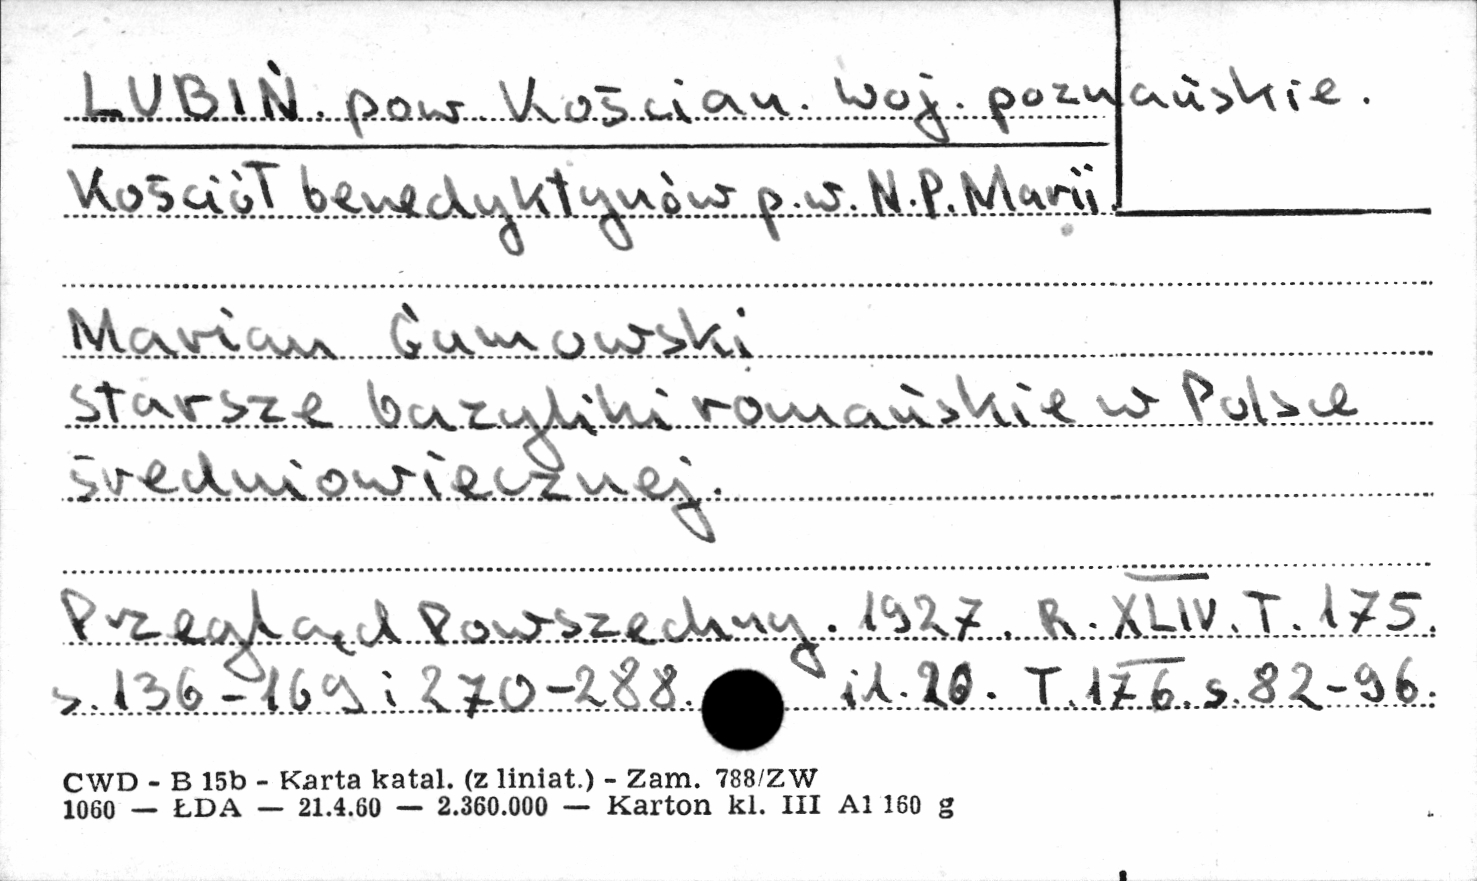 LUBIŃ. pow. Kościan. woj. poznańskie.
Kościół benedyktynów p.w. N.P. Marii.
Marian Gumowski
starsze bazyliki romańskie w Polsce
średniowiecznej.
Przegląd Powszechny. 1927. R. XLIV. T. 175.
s. 136-169 i 270-288. il. 20. T. 176. s. 82-96.
CWD - B 15b - Karta katal. (z liniat.) - Zam. 788/ZW
1060 — ŁDA — 21.4.60 — 2.360.000 — Karton kl. III A1 160 g